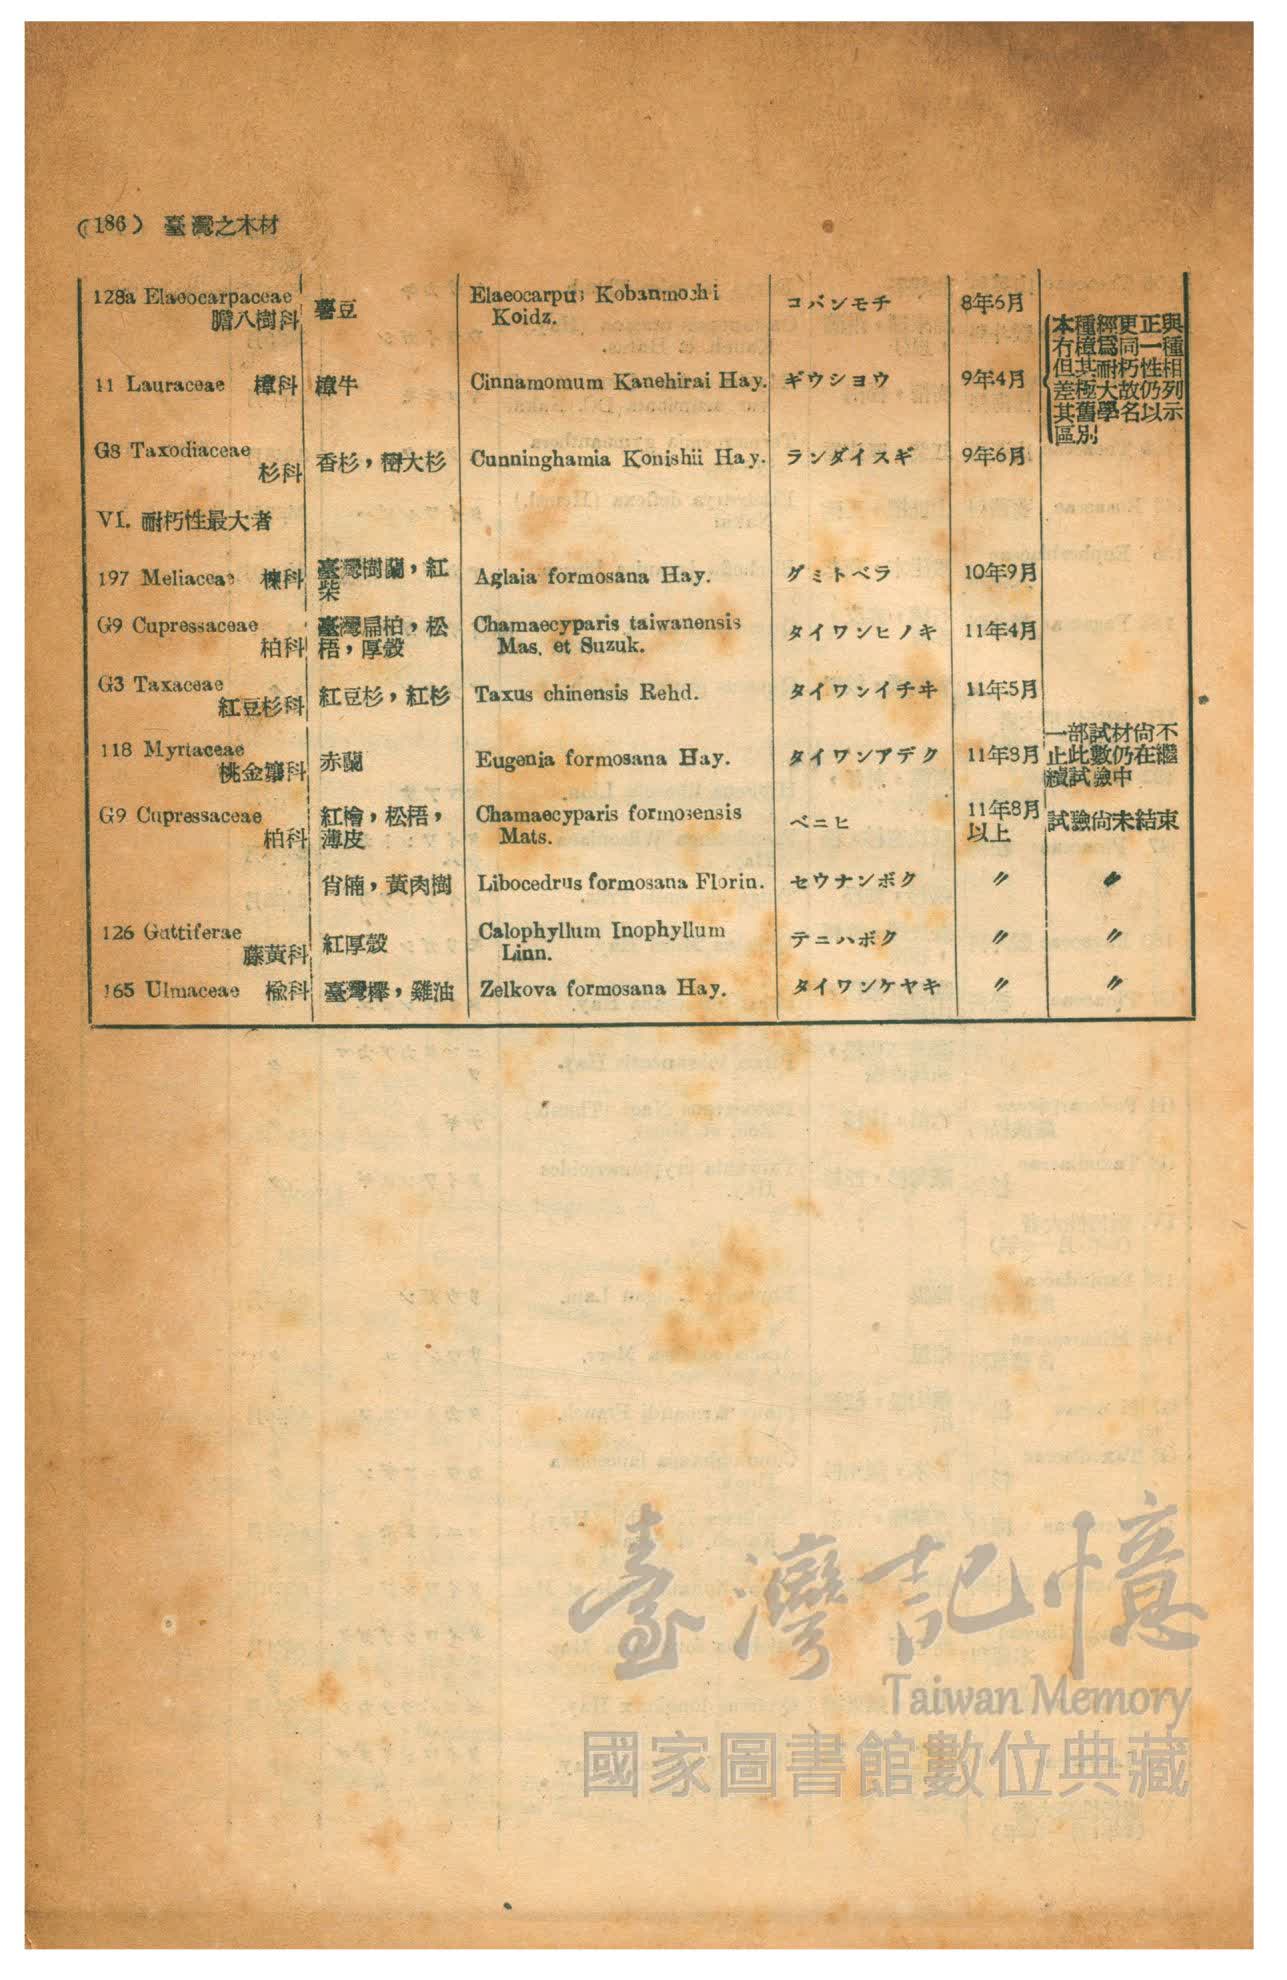 (186) 臺灣之木材
128a Elaeocarpaceae
膽八樹科
薯豆
Elaeocarpus Kobanmochi
Koidz.
コバンモチ
8年6月
11 Lauraceae 樟科
樟牛
Cinnamomum Kanehirai Hay.
ギウシヨウ
9年4月
本種經更正與
有樟爲同一種
但其耐朽性相
差極大故仍列
其舊學名以示
區別
G8 Taxodiaceae
杉科
香杉，巒大杉
Cunninghamia Konishii Hay.
ランダイスギ
9年6月
VI. 耐朽性最大者
197 Meliaceae 楝科
臺灣樹蘭，紅
柴
Aglaia formosana Hay.
グミトベラ
10年9月
G9 Cupressaceae
柏科
臺灣扁柏，松
梧，厚殼
Chamaecyparis taiwanensis
Mas. et Suzuk.
タイワンヒノキ
11年4月
G3 Taxaceae
紅豆杉科
紅豆杉，紅杉
Taxus chinensis Rehd.
タイワンイチヰ
11年5月
118 Myrtaceae
桃金孃科
赤蘭
Eugenia formosana Hay.
タイワンアデク
11年8月
一部試材尙不
止此數仍在繼
續試驗中
G9 Cupressaceae
柏科
紅檜，松梧，
薄皮
Chamaecyparis formosensis
Mats.
ベニヒ
11年8月
以上
試驗尙未結束
肖楠，黃肉樹
Libocedrus formosana Florin.
セウナンボク
〃
〃
126 Guttiferae
藤黃科
紅厚殼
Calophyllum Inophyllum
Linn.
テニハボク
〃
〃
165 Ulmaceae 楡科
臺灣櫸，雞油
Zelkova formosana Hay.
タイワンケヤキ
〃
〃
臺灣記憶
Taiwan Memory
國家圖書館數位典藏